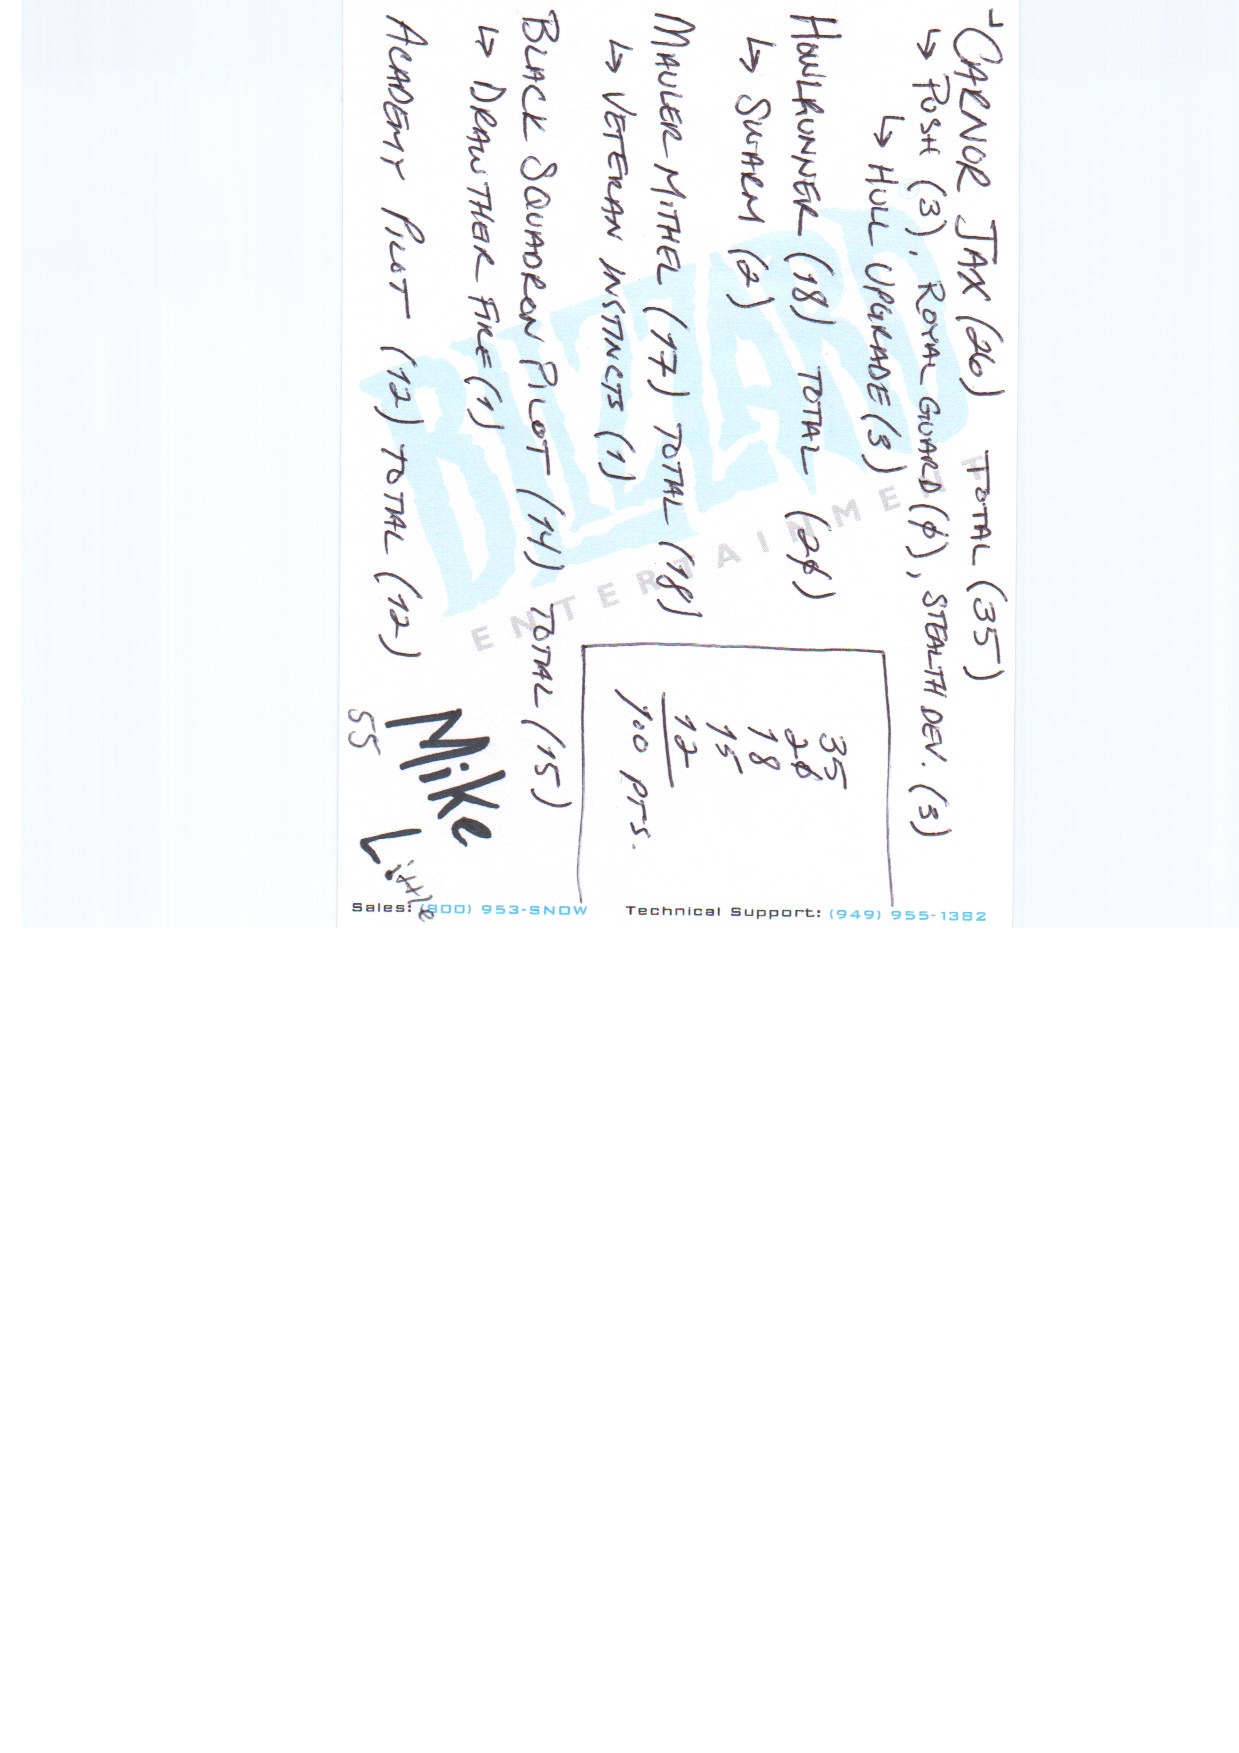 CARNOR JAX (26) TOTAL (35)
↳ PUSH (3), ROYAL GUARD (0), STEALTH DEV. (3)
↳ HULL UPGRADE (3)
HOWLRUNNER (18) TOTAL (20)
↳ SWARM (2)
MAULER MITHEL (17) TOTAL (18)
↳ VETERAN INSTINCTS (1)
BLACK SQUADRON PILOT (14) TOTAL (15)
↳ DRAW THEIR FIRE (1)
ACADEMY PILOT (12) TOTAL (12)
35
20
18
15
12
100 PTS.
Mike
Little
55
BLIZZARD
ENTERTAINMENT
Sales: (800) 953-SNOW
Technical Support: (949) 955-1382